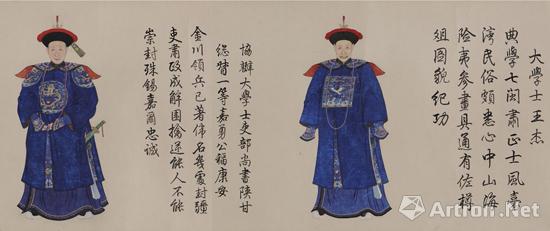 大學士王杰
典學七閩肅正士風臺
灣民俗頗悉心中山海
險夷參畫具通有佐樽
俎圖貌紀功
協辦大學士吏部尚書陝甘
總督一等嘉勇公福康安
金川領兵已著偉名幾處封疆
吏肅政成解圍擒逆能人不能
崇封殊錫嘉爾忠誠
Artron.Net